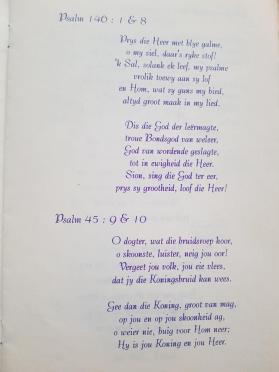 Psalm 146 : 1 & 8
Prys die Heer met blye galme,
o my siel, daar's ryke stof!
'k Sal, solank ek leef, my psalme
vrolik toewy aan sy lof
en Hom, wat sy guns my bied,
altyd groot maak in my lied.
Dis die God der leërmagte,
troue Bondsgod van weleer,
God van wordende geslagte,
tot in ewigheid die Heer.
Sion, sing die God ter eer,
prys sy grootheid, loof die Heer!
Psalm 45 : 9 & 10
O dogter, wat die bruidsroep hoor,
o skoonste, luister, neig jou oor!
Vergeet jou volk, jou eie vlees,
dat jy die Koningsbruid kan wees.
Gee dan die Koning, groot van mag,
op jou en op jou skoonheid ag,
o weier nie, buig voor Hom neer;
Hy is jou Koning en jou Heer.